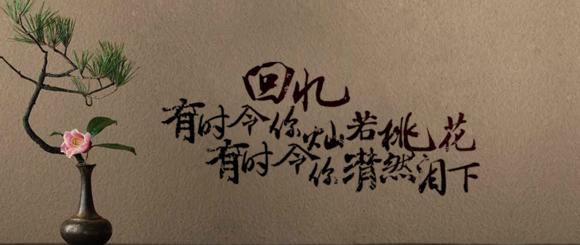 回忆
有时令你灿若桃花
有时令你潸然泪下